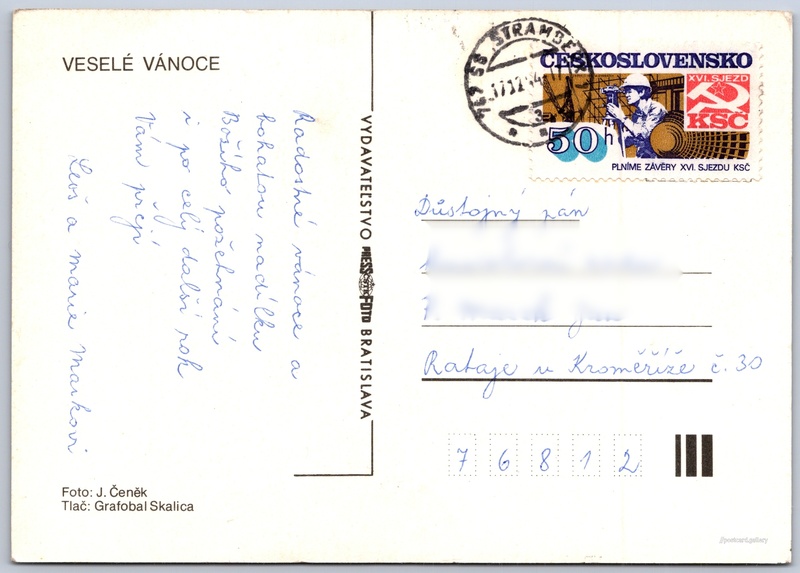 VESELÉ VÁNOCE
Radostné vánoce a
bohatou nadílku
Božího požehnání
i po celý další rok
Vám přejí
Leoš a Marie Markovi
Foto: J. Čeněk
Tlač: Grafobal Skalica
VYDAVATEĽSTVO PRESSFOTO BRATISLAVA
742 66 ŠTRAMBERK
17.12.84
ČESKOSLOVENSKO
XVI. SJEZD
KSČ
50 h
PLNÍME ZÁVĚRY XVI. SJEZDU KSČ
Důstojný pán
Rataje u Kroměříže č. 30
7 6 8 1 2
//postcard.gallery